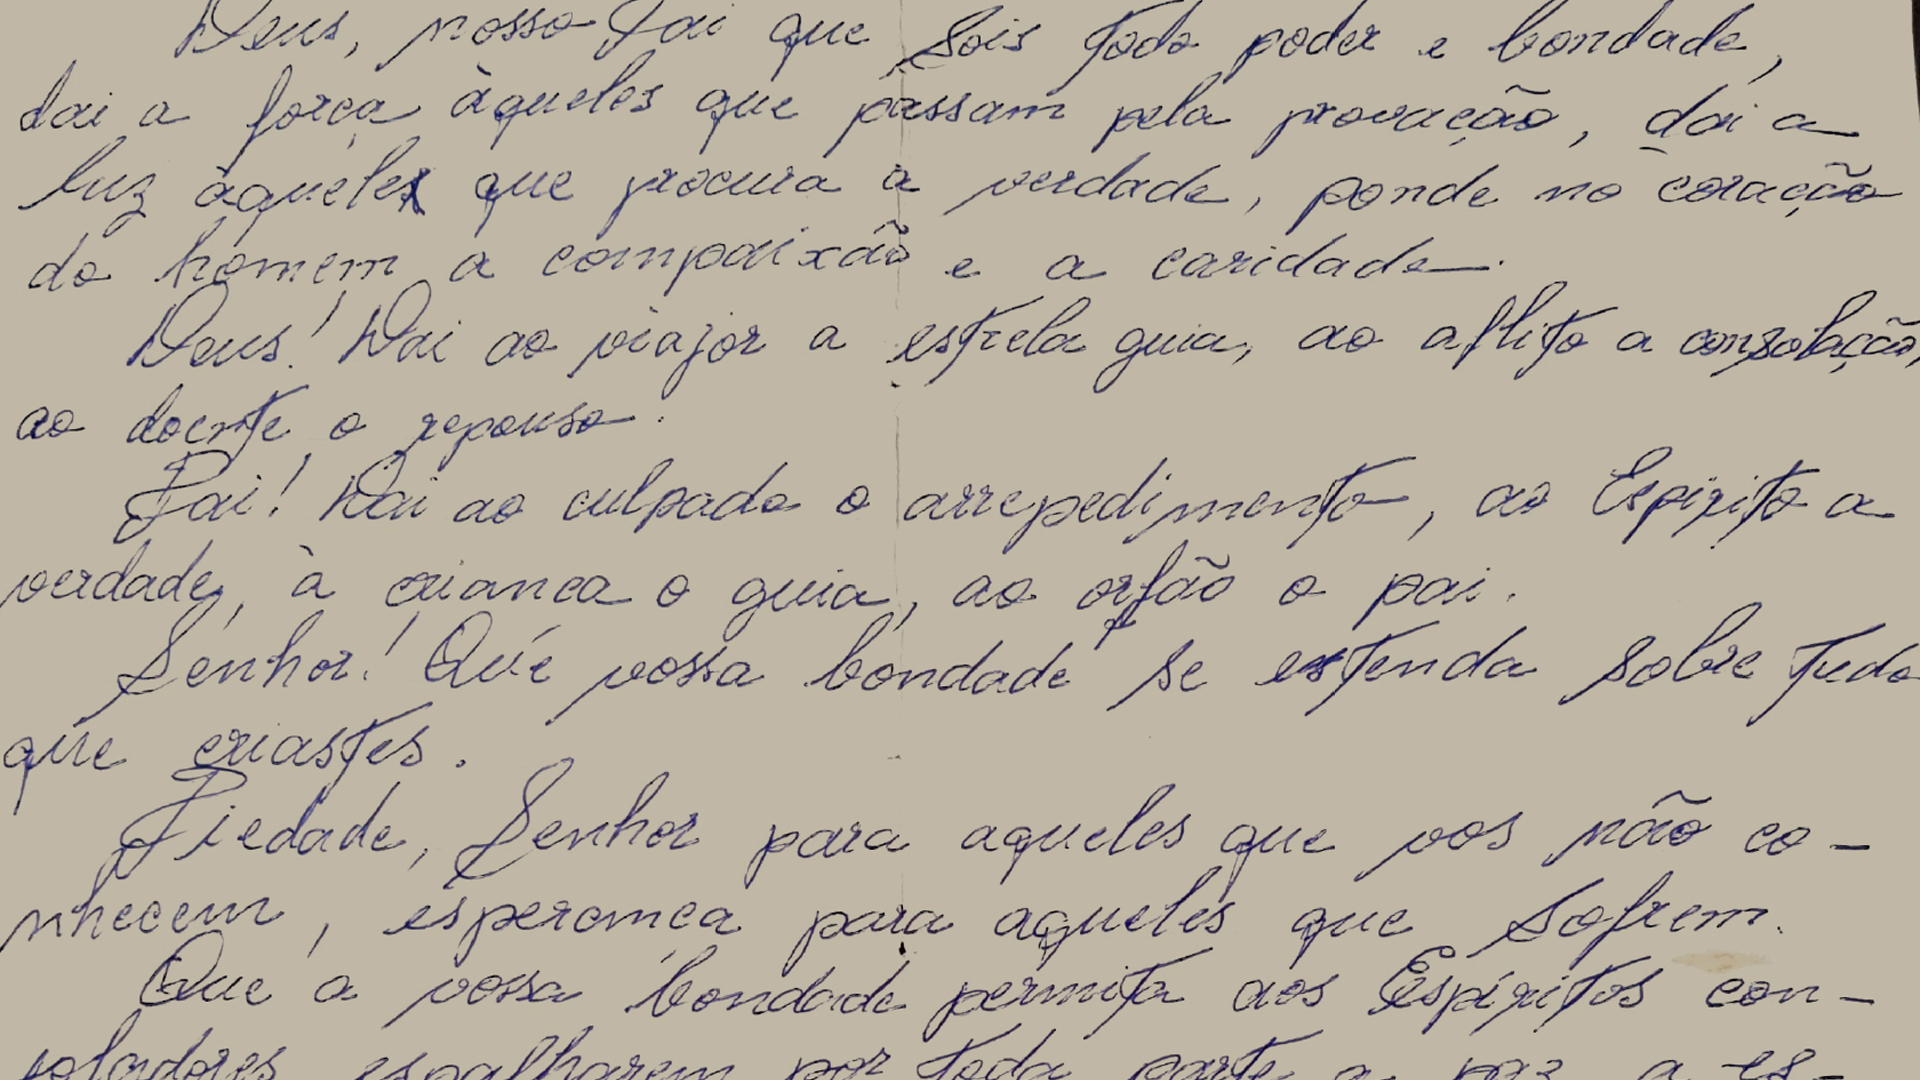 Deus, nosso Pai que sois todo poder e bondade,
dai a força àqueles que passam pela provação, dai a
luz àquele que procura a verdade, ponde no coração
do homem a compaixão e a caridade.
Deus! Dai ao viajor a estrela guia, ao aflito a consolação,
ao doente o repouso.
Pai! Dai ao culpado o arrepedimento, ao Espirito a
verdade, à crianca o guia, ao orfão o pai.
Senhor! Que vossa bondade se estenda sobre tudo
que criastes.
Piedade, Senhor para aqueles que vos não co-
nhecem, esperanca para aqueles que sofrem.
Que a vossa bondade permita aos Espíritos con-
soladores espalharem por toda parte a paz, a es-